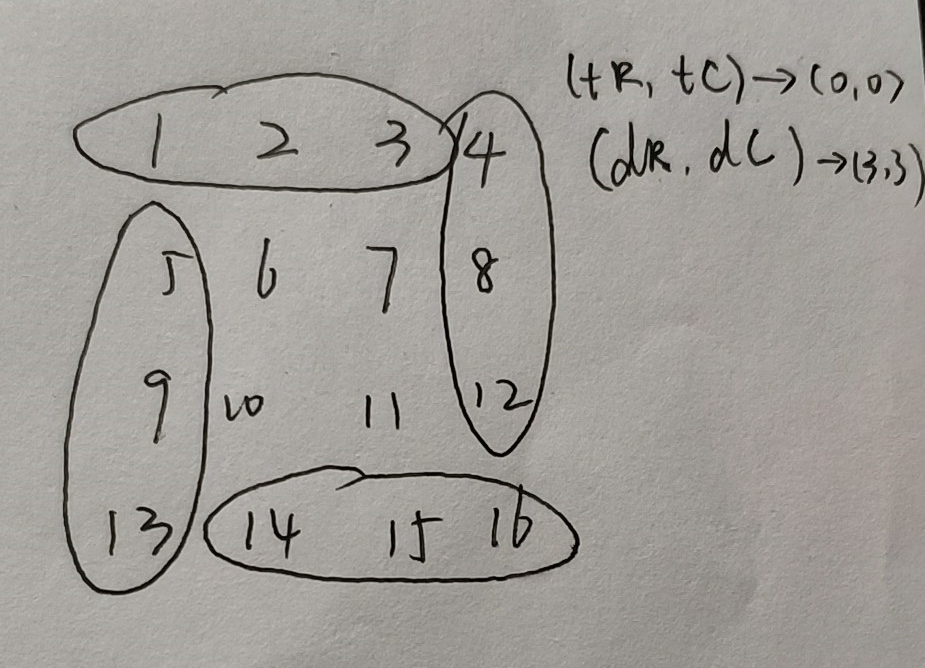 (tR, tC)→(0,0)
(dR, dC)→(3,3)
1 2 3 4
5 6 7 8
9 10 11 12
13 14 15 16